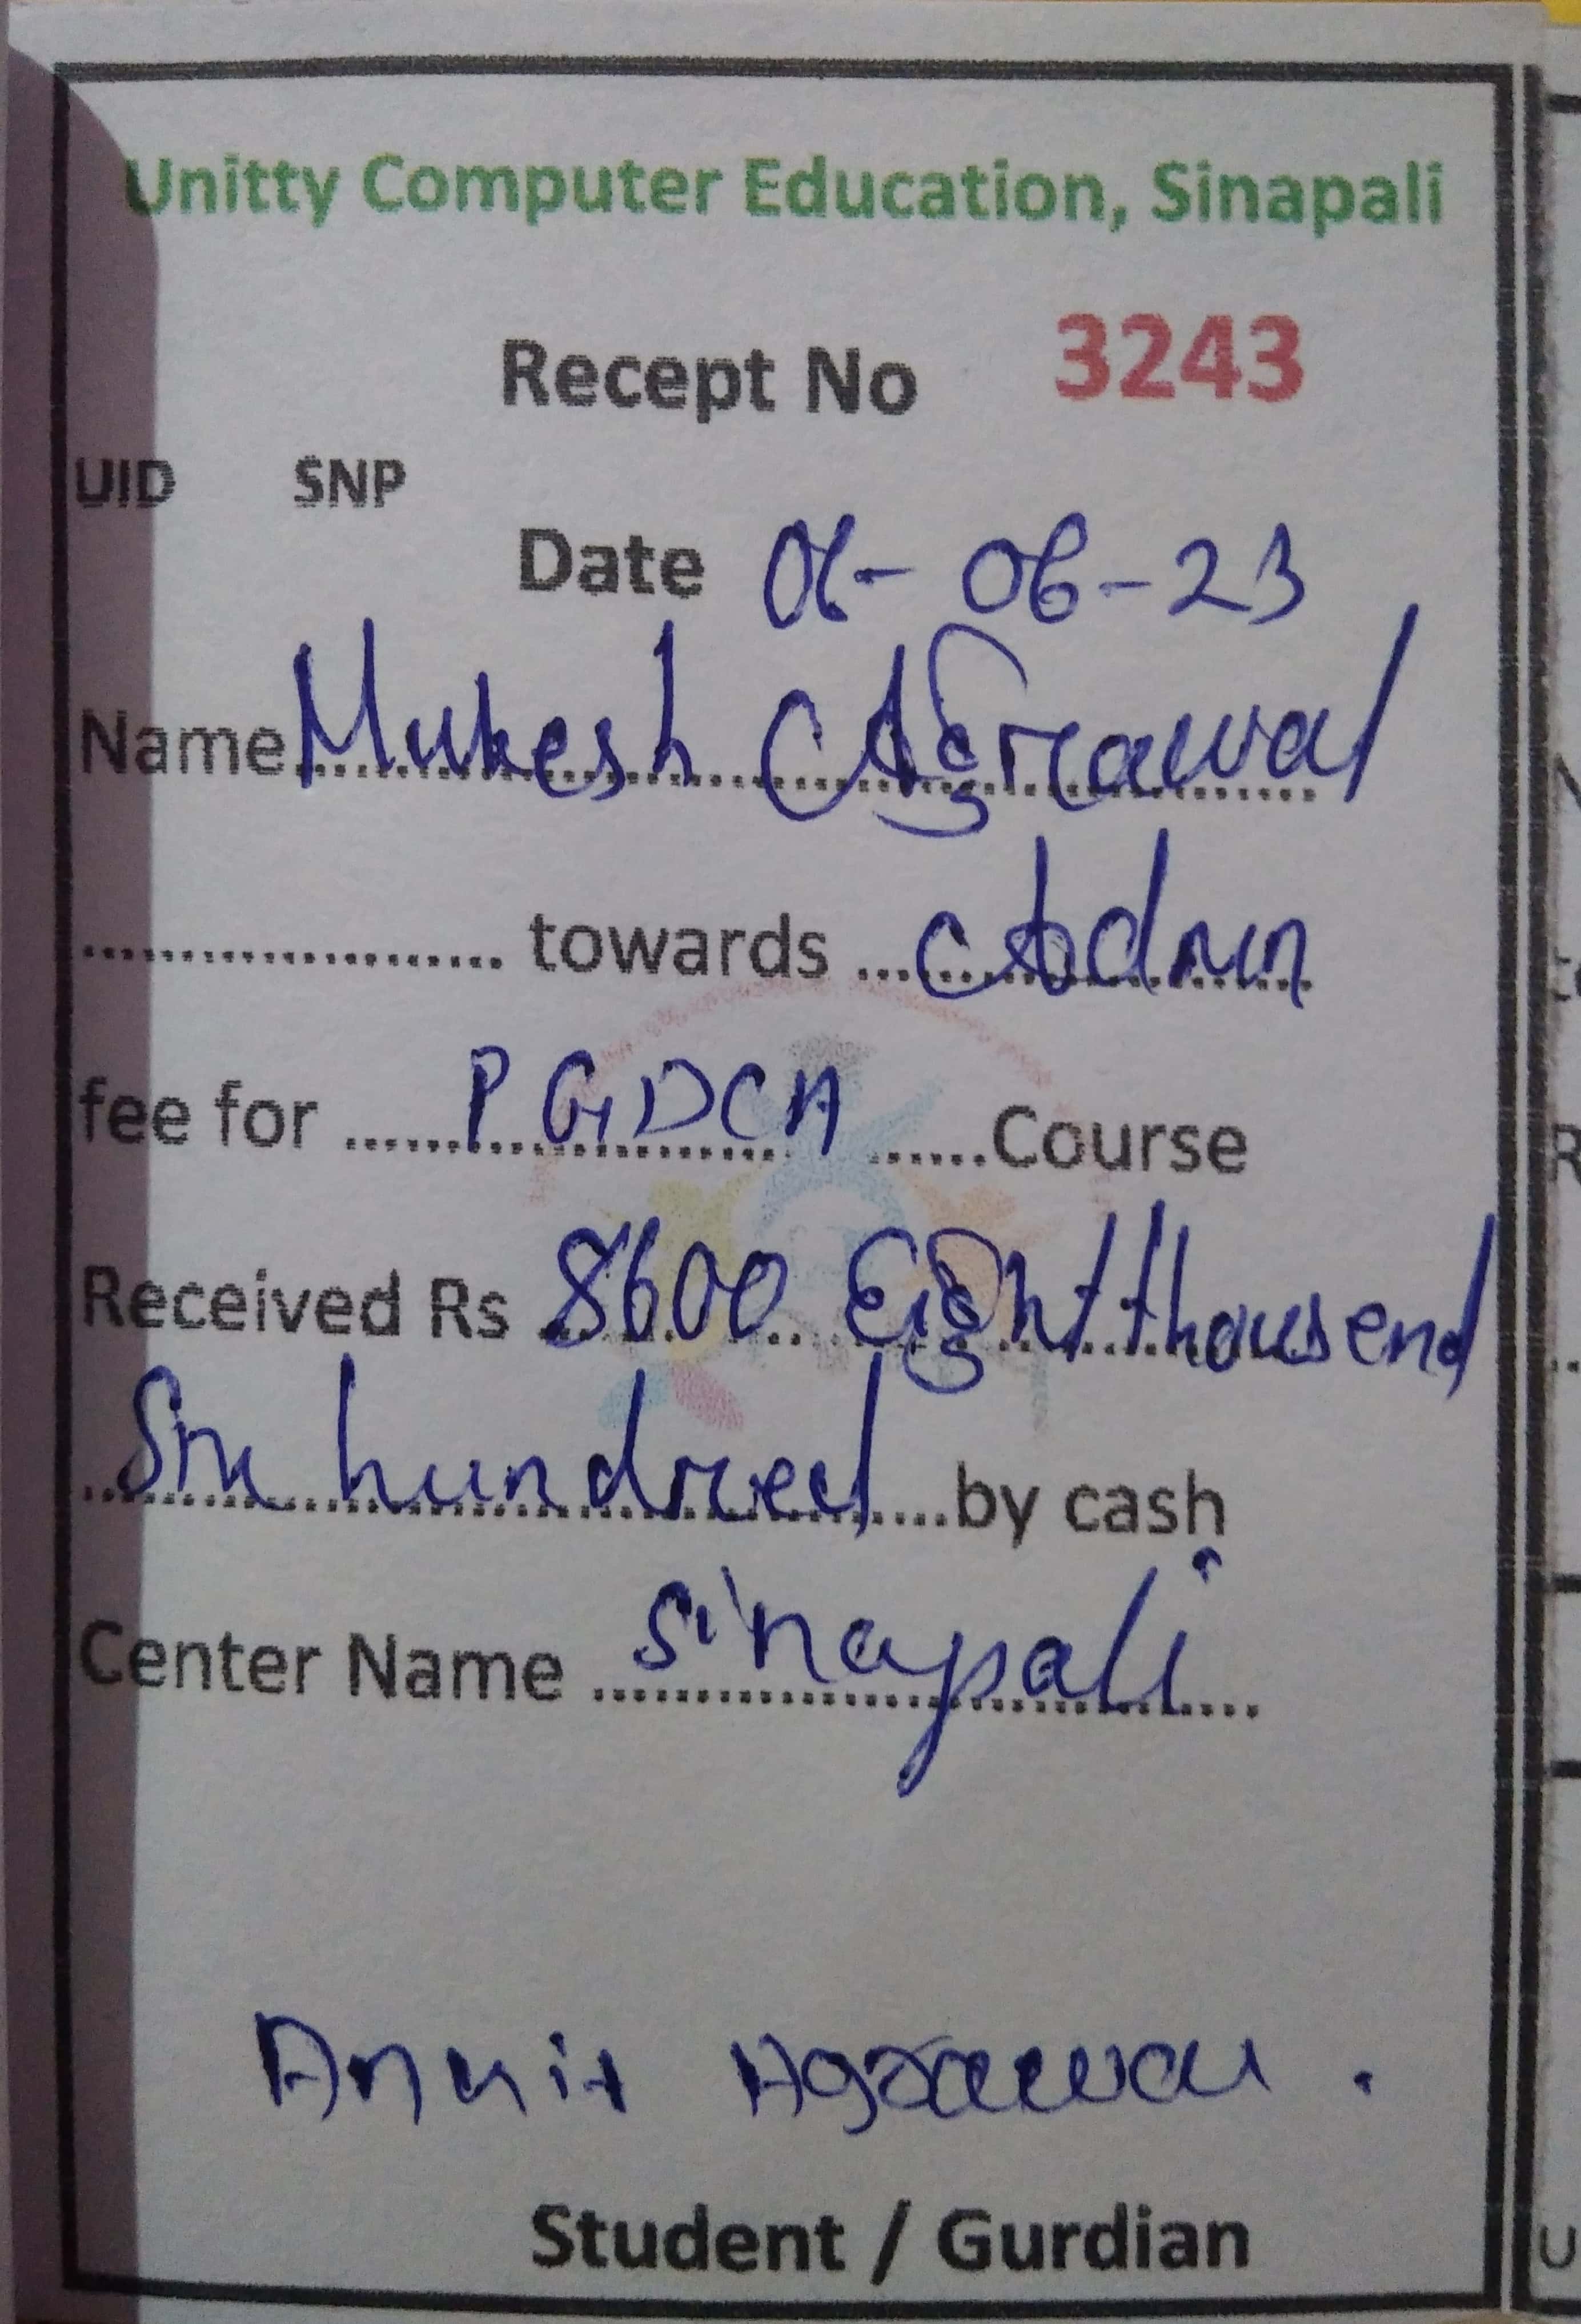 Unitty Computer Education, Sinapali
Recept No 3243
UID SNP
Date 06-06-23
Name Mukesh Agrawal
.................... towards ... Admn
fee for ...... PGDCA ......Course
Received Rs 8600 Eight thousend
Six hundred ....by cash
Center Name Sinapali
Ankit Agrawal .
Student / Gurdian